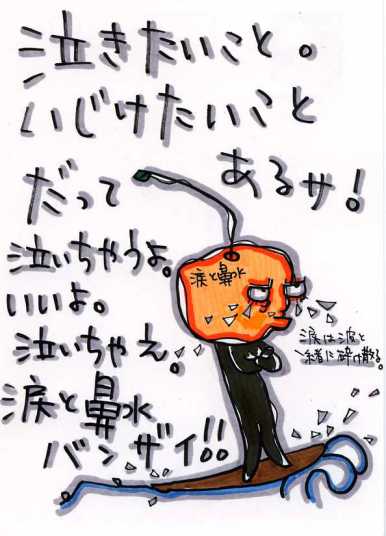 泣きたいこと。
いじけたいこと
だって あるサ!
泣いちゃうよ。
いいよ。
泣いちゃえ。
涙と鼻水
バンザイ!!
涙と鼻水
涙は波と
一緒に砕け散る。